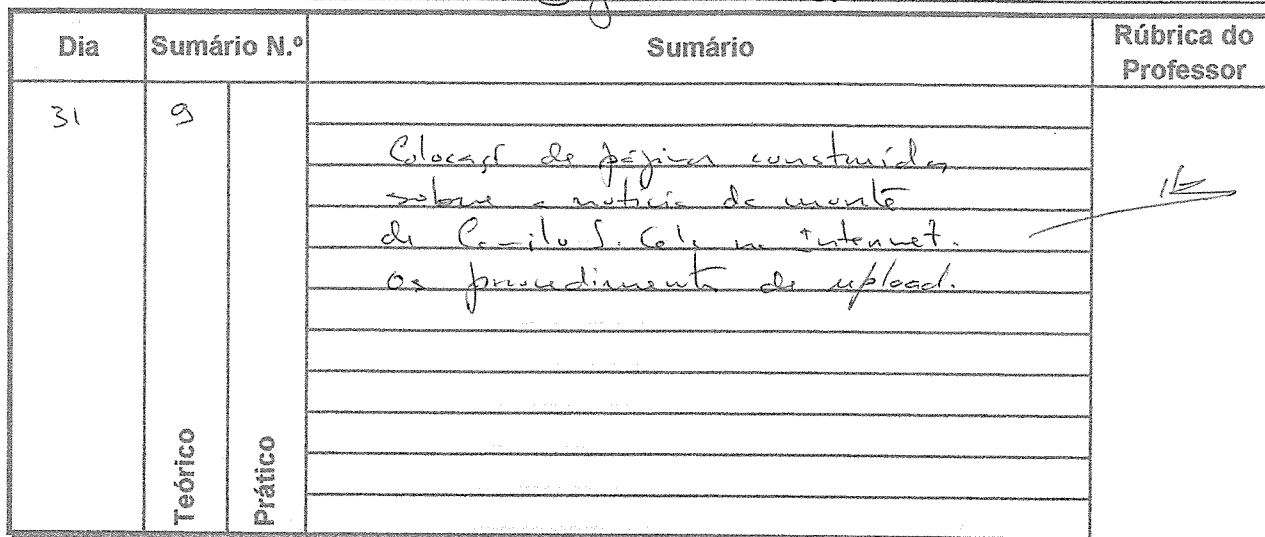 Dia
Sumário N.º
Sumário
Rúbrica do
Professor
31
9
Colocaçã de páginas construídas
sobre a notícia da morte
de Camilo J. Cela na Internet.
Os procedimentos de upload.
Teórico
Prático